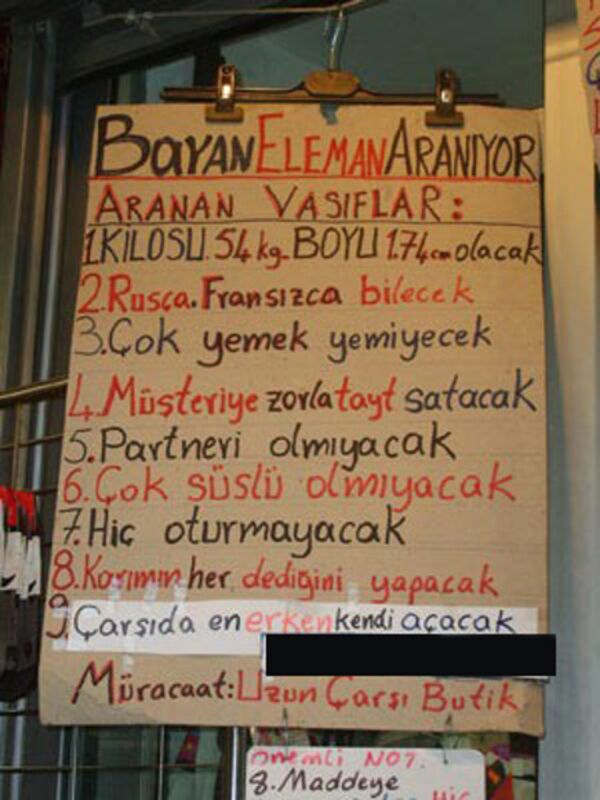 BaYAN ELEMAN ARANIYOR
ARANAN VASIFLAR:
1.KİLOSU.54 kg. BOYU 1.74 cm olacak
2.Rusça.Fransızca bilecek
3.Çok yemek yemiyecek
4.Müşteriye zorla tayt satacak
5.Partneri olmıyacak
6.Çok süslü olmıyacak
7.Hiç oturmayacak
8.Karımın her dediğini yapacak
9.Çarşıda en erken kendi açacak
Müracaat: Uzun Çarşı Butik
önemli NOT.
8.Maddeye
HİÇ